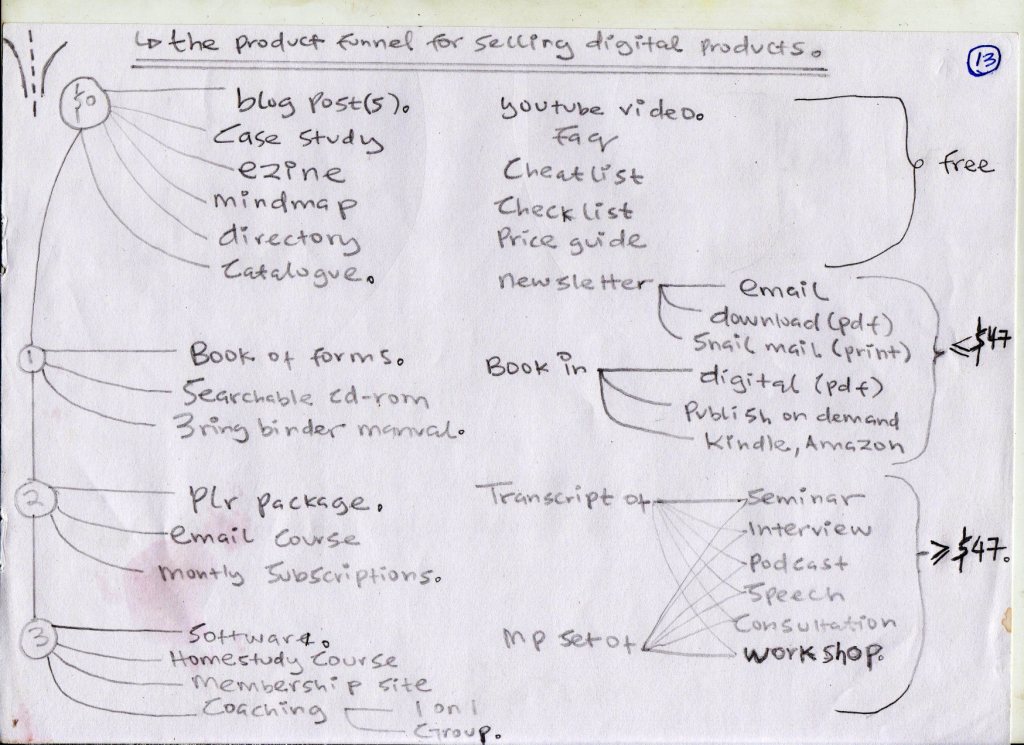 ↳ the product funnel for selling digital products.
13
$0
blog post(s).
Case study
ezine
mindmap
directory
Catalogue.
youtube video.
Faq
Cheatlist
Checklist
Price guide
free
newsletter
email
download (pdf)
Snail mail (print)
≤ $47
1
Book of forms.
Searchable cd-rom
3 ring binder manual.
Book in
digital (pdf)
Publish on demand
Kindle, Amazon
2
Plr package.
email course
montly subscriptions.
Transcript of
Seminar
Interview
Podcast
Speech
Consultation
workshop.
≥ $47.
3
Software.
Homestudy Course
Membership site
Coaching
1 on 1
Group.
Mp set of